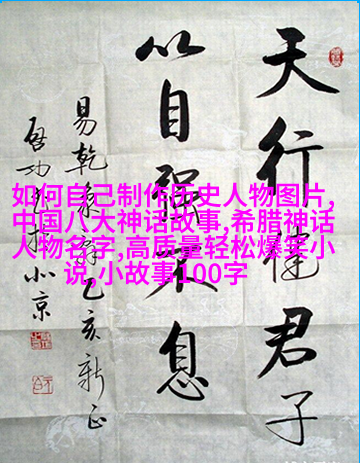 天行健君子
以自強不息
易乾象辭乙亥新正
啟功 北京
如何自己制作历史人物图片,
中国八大神话故事,希腊神话
人物名字,高质量轻松爆笑小
说,小故事100字